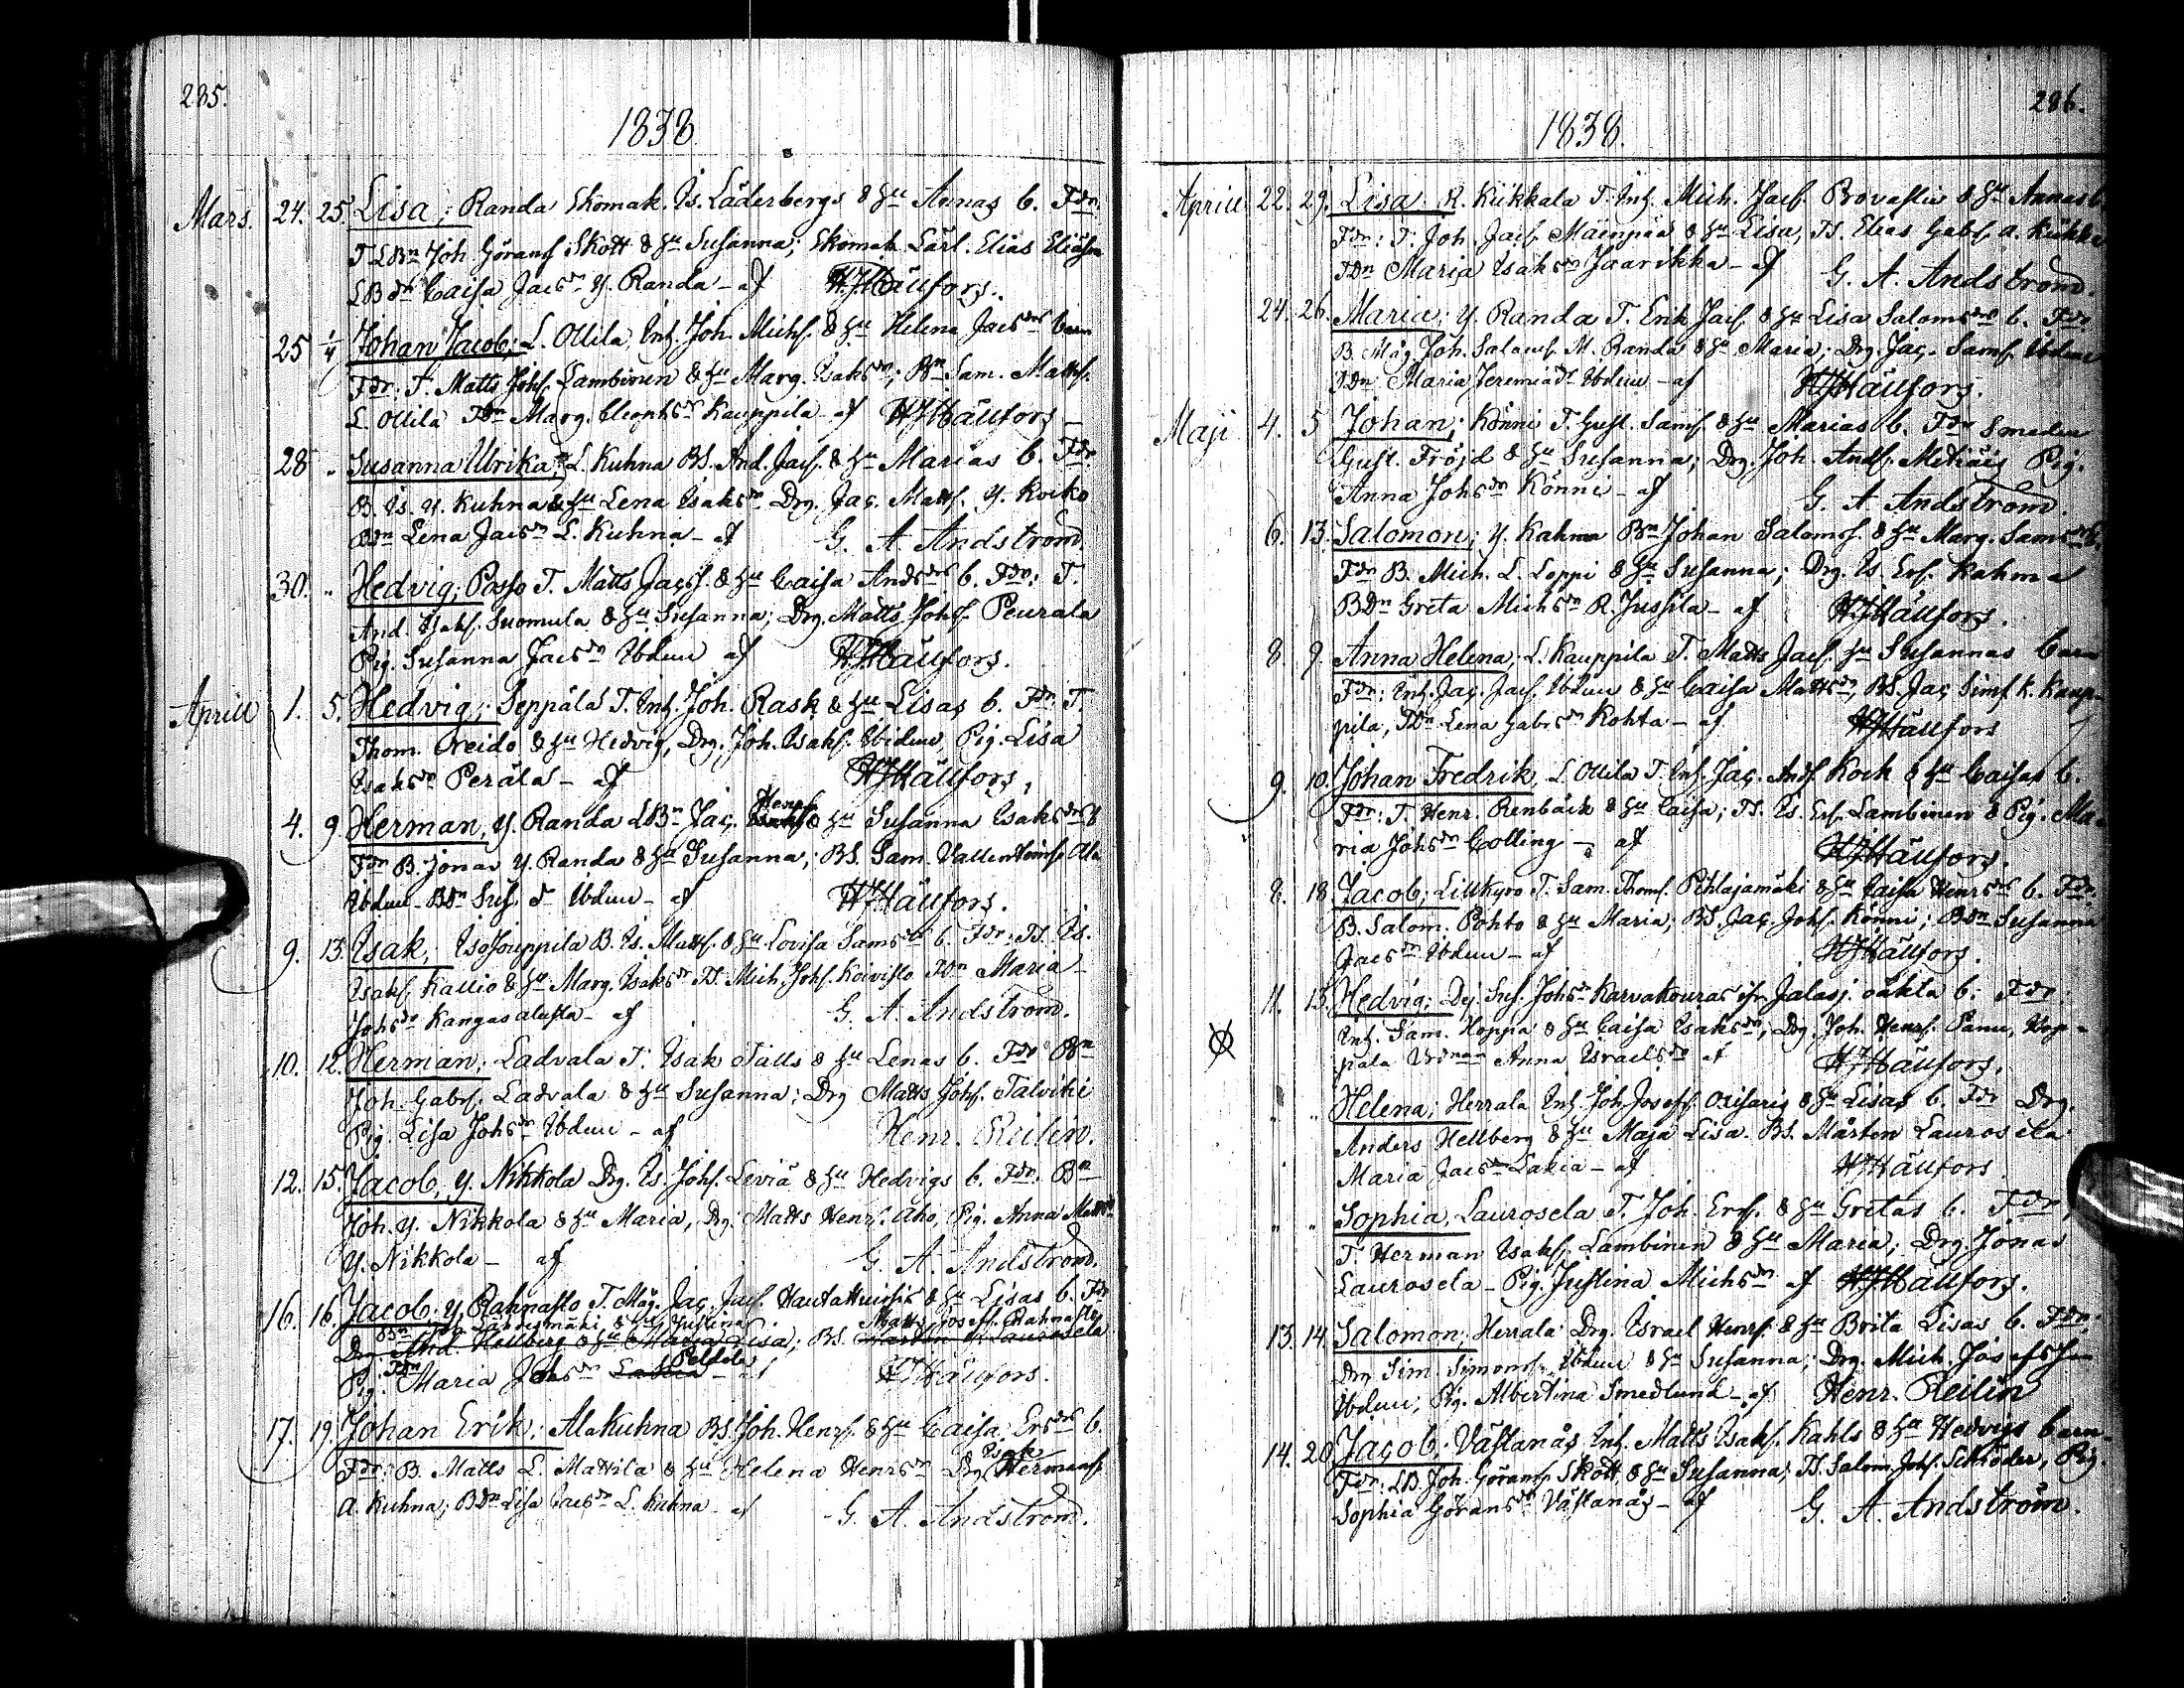 285.
1838
Mars. 24. 25. Lisa; Randa Skomak. Is. Läderbergs & Hu Annas b. Fdr.
T LBn Joh. Göransf. Skott & Hu Susanna; Skomak. Lärl. Elias Eliasson
LBdn Caisa Jacsdn Y. Randa - af HJHällfors.
25 1/4 Johan Jacob; L. Ollila, Inh. Joh. Michsf. & Hu Helena Jacsdrs barn
Fdr: T. Matts Johsf. Lambinen & Hu Marg. Isaksdr; Bn Sam. Mattsf.
L. Ollila TDn Marg. Cleophsdn Kauppila - af HJHällfors -
28 " Susanna Ulrika; L. Kuhna BS. And. Jacsf. & Hu Marias b. Fdr.
B. Is. Y. Kuhna & Hu Lena Isaksdr Drg. Jac. Mattsf. Y. Koiko
BDn Lena Jacsdn L. Kuhna - af G. A. Andström.
30. " Hedvig; Posso T. Matts Jacsf. & Hu Caisa Andsdrs b. Fdr: T.
And. Isaksf. Suomula & Hu Susanna; Drg. Matts Johsf. Peurala
Pig. Susanna Jacsdn Ibdm af HJHällfors.
Aprill 1. 5. Hedvig; Seppälä T. Inh. Joh. Rask & Hu Lisas b. Fdr: T.
Thom. Kreido & Hu Hedvig, Drg. Joh. Isaksf. Ibidem, Pig. Lisa
Isaksdn Peräla - af HJHällfors,
4. 9. Herman, Y. Randa LBn Jac. Henrsf. & Hu Susanna Isaksdrs b
Fdr B. Jonas Y. Randa & Hu Susanna; BS. Sam. Vallentinsf. Ala
Ibdm - BDn Sus. d Ibdm - af HJHällfors.
9. 13. Isak, IsoJouppila B. Is. Mattsf. & Hu Lovisa Samsdrs b. Fdr: TS. Is.
Isaksf. Kallio & Hu Marg. Isaksdr TS. Mich. Johsf. Koivisto TDn Maria
Johsdn Kangasalusta - af G. A. Andström.
10. 12. Herman; Ladvala T. Isak Talls & Hu Lenas b. Fdr Bn
Joh. Gabrsf. Ladvala & Hu Susanna; Drg Matts Johsf. Talviki
Pig. Lisa Johsdn Ibdm - af Henr. Reilin.
12. 15. Jacob, Y. Nikkola Drg. Is. Johsf. Leviä & Hu Hedvigs b. Fdr. Bn
Joh. Y. Nikkola & Hu Maria, Dg. Matts Henrsf. Aho, Pig. Anna Mattsdn
Y. Nikkola - af G. A. Andström.
16. 16. Jacob; Y. Rahnasto T. Måg. Jac. Jacsf. & Hu Lisas b. Fdr
Bn & Hu Justina Matts Josefsf. Rahnasto
Drg And. Hellberg & Hu Maja Lisa; BS. Mårten Laurosela
Pig. TDn Maria Johsdn Lakia Peldola - af HJHällfors.
17. 19. Johan Erik; AlaKuhna BS. Joh. Henrsf. & Hu Caisa Ersdrs b.
Fdr: B. Matts L. Mattila & Hu Helena Henrsdn Drg Isak Hermansf.
A. Kuhna; BDn Lisa Jacsdn L. Kuhna - af G. A. Andström.
286.
1838.
Aprill 22. 29. Lisa. R. Kiikkala T. Inh. Mich. Jacsf. Provastin & Hu Annas b.
Fdr: T. Joh. Jacsf. Mäenpää & Hu Lisa, TS. Elias Gabrsf. a. Kiikka
TDn Maria Isaksdn Jaarikka - af G. A. Andström.
24. 26. Maria; Y. Randa T. Erik Jacsf. & Hu Lisa Salomsdrs b. Fdr.
B. Måg. Joh. Salomsf. M. Randa & Hu Maria; Drg. Jac. Samsf. Ibdem
TDn Maria Jeremiädr Ibdem - af HJHällfors.
Maji 4. 5 Johan; Könni T. Gust. Samsf. & Hu Marias b. Fdr Smeden
Gust. Fröjd & Hu Susanna; Drg. Joh. Andsf. Pig.
Anna Johsdn Könni - af G. A. Andström.
6. 13. Salomon; Y. Kahma Bn Johan Salomsf. & Hu Marg. Samsdrs b.
Fdr B. Mich. L. Loppi & Hu Susanna; Drg. Is. Ersf. Kahma
BDn Greta Michsdn R. Jussila - af HJHällfors.
8. 9. Anna Helena; L. Kauppila T. Matts Jacsf. Hu Susannas barn
Fdr: Inh. Jac. Jacsf. Ibdm & Hu Caisa Mattsdr, BS. Jac Simsf. K. Kaup-
pila, TDn Lena Gabrsdn Kohta - af HJHällfors
9. 10. Johan Fredrik, L Ollila T. Inh. Jac. Andsf. Koik & Hu Caisas b.
Fdr: T. Henr. Renbäck & Hu Caisa; TS. Is. Ersf. Lambinen & Pig. Ma-
ria Johsdn Colling - af HJHällfors.
8. 18. Jacob; Lillkyro T. Sam. Thomsf. Pihlajamäki & Hu Caisa Henrsdrs b. Fdr.
B. Salom. Pohto & Hu Maria; BS. Jac. Johsf. Könni; BDn Susanna
Jacsdn Ibdem - af HJHällfors.
11. 13. Hedvig; Dej. Sus. Johsdn Karvakouras ifr Jalasj. oäkta b. Fdr:
Inh. Sam. Hoppa & Hu Caisa Isaksdr, Drg. Joh. Henrsf. Panu, Hop-
pala Anna Israelsdn af HJHällfors.
" " Helena; Herrala Inh. Joh. Josefsf. & Hu Lisas b. Fdr Drg.
Anders Hellberg & Hu Maja Lisa. BS. Mårten Laurosela
Maria Jacsdn Lakia - af HJHällfors
" " Sophia, Laurosela T. Joh. Ersf. & Hu Gretas b. Fdr,
T. Herman Isaksf. Lambinen & Hu Maria; Drg Jonas
Laurosela - Pig. Justina Michsdn af HJHällfors.
13. 14. Salomon; Herrala Drg. Israel Henrsf. & Hu Brita Lisas b. Fdr.
Drg Sim. Simonsf. Ibdem & Hu Susanna; Drg. Mich. Josefsson
Ibdem; Pig. Albertina Smedlund - af Henr. Reilin
14. 20. Jacob; Västanås Inh. Matts Isaksf. Kahls & Hu Hedvigs barn -
Fdr: LB. Joh. Göransf. Skott & Hu Susanna; TS. Salom. Johsf. Schröder, Pig.
Sophia Göransdn Västanås - af G. A. Andström.